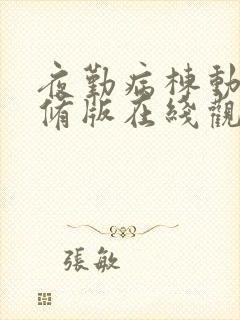 夜勤病棟動
脩版在綫觀
張敏